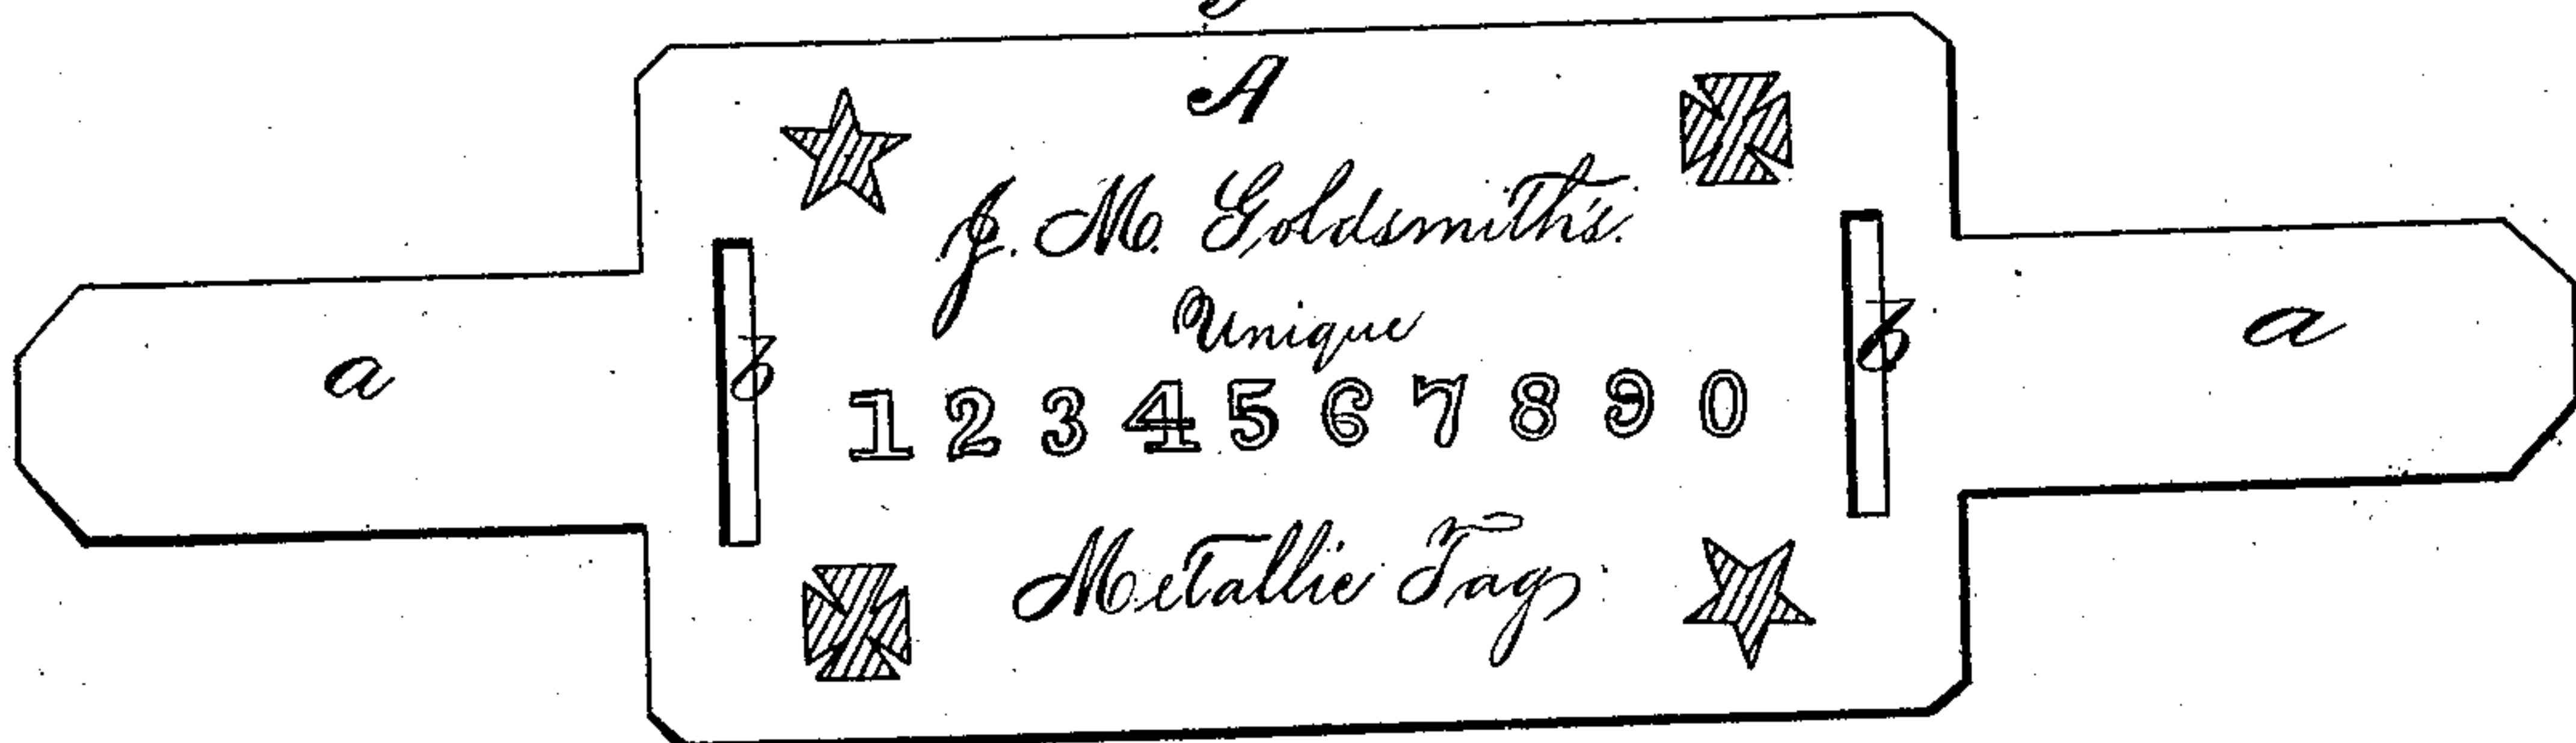 A
J. M. Goldsmith's.
Unique
a b 1 2 3 4 5 6 7 8 9 0 b a
Metallic Tag